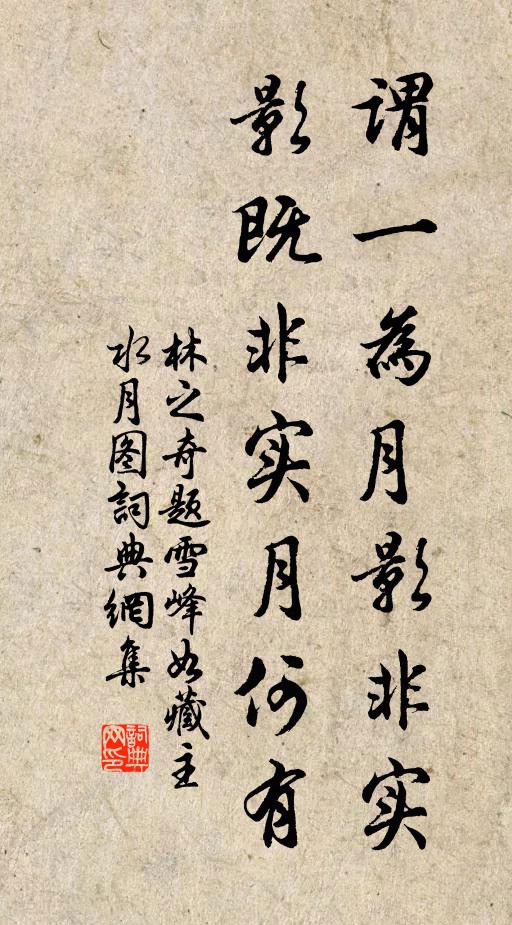 謂一為月影非实
影既非实月何有
林之奇题雪峰如藏主
水月图詞典網集
詞典网印